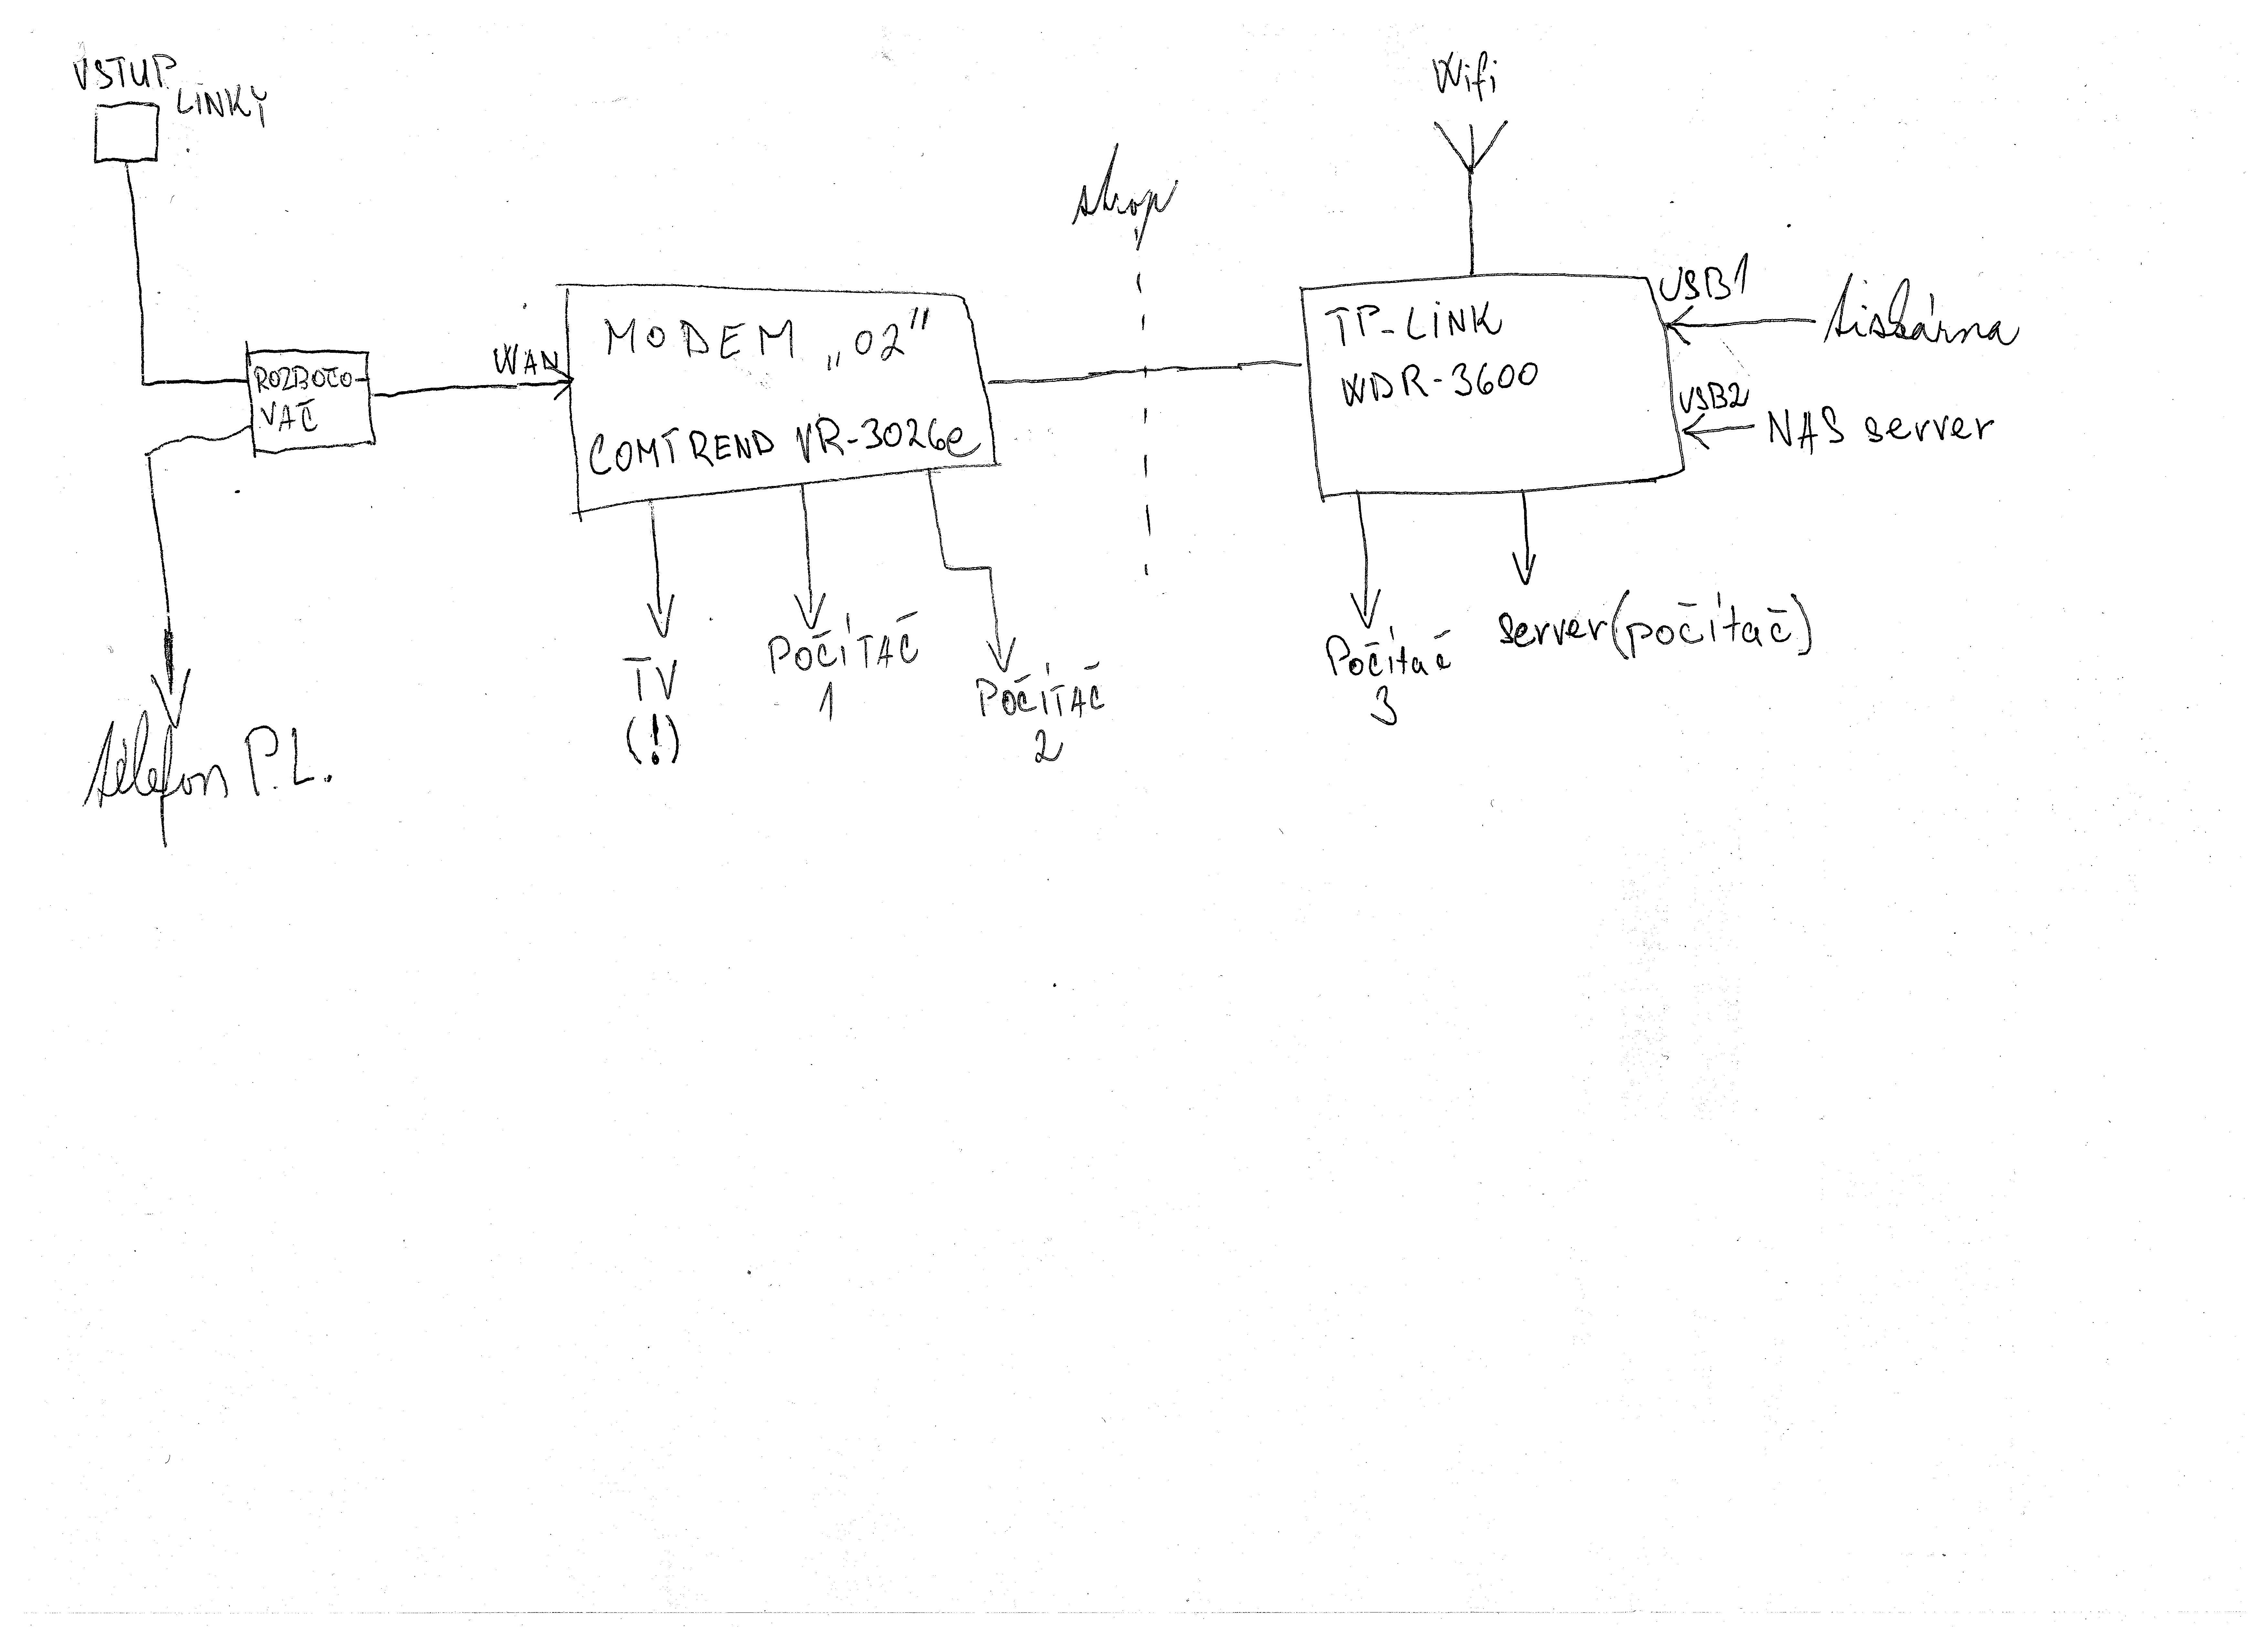 VSTUP
LINKY
Wifi
strop
ROZBOČO-
VAČ
WAN
MODEM „O2"
COMTREND VR-3026e
TP-LINK
WDR-3600
USB1
tiskárna
USB2
NAS server
telefon P.L.
TV
(!)
POČÍTAČ
1
POČÍTAČ
2
Počítač
3
server (počítač)